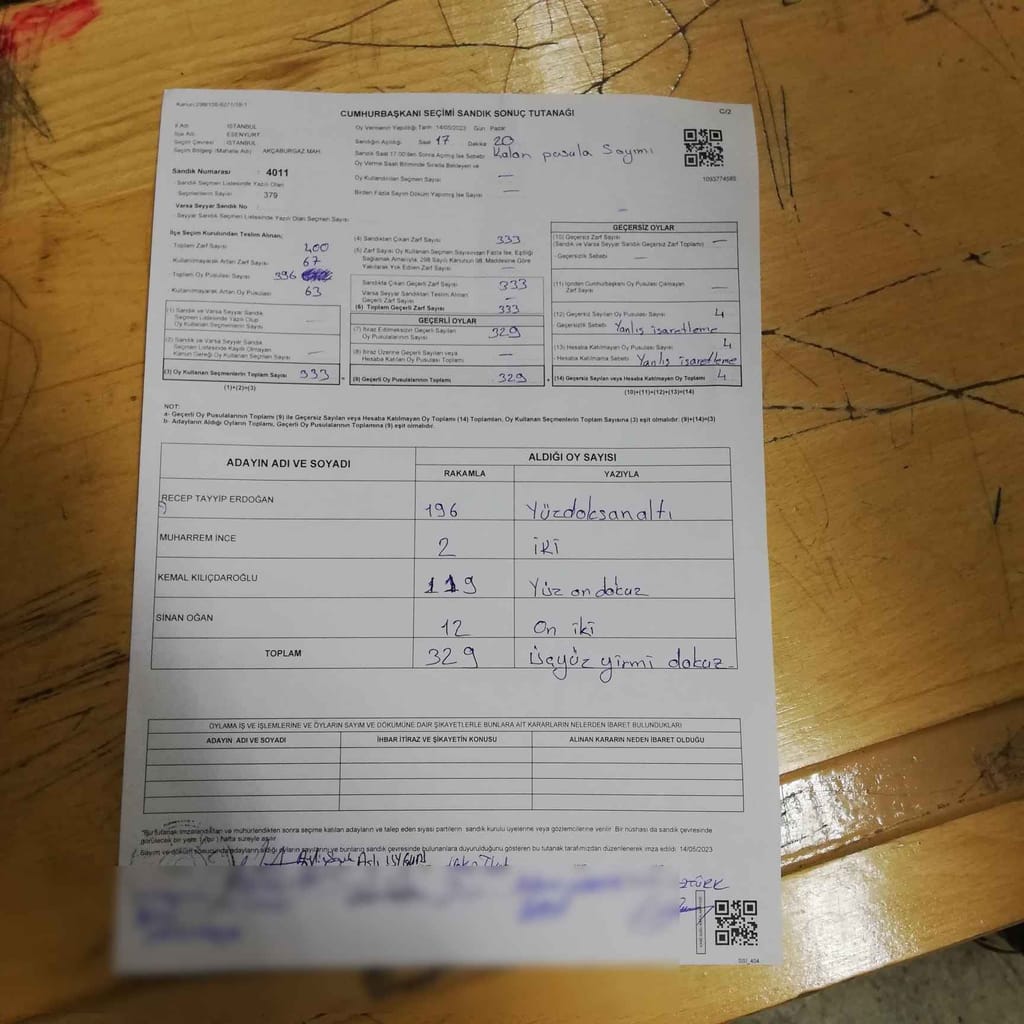 CUMHURBAŞKANI SEÇİMİ SANDIK SONUÇ TUTANAĞI
C/2
İl Adı: İSTANBUL
İlçe Adı: ESENYURT
Seçim Çevresi: İSTANBUL
Seçim Bölgesi (Mahalle Adı) AKÇABURGAZ MAH.
Sandık Numarası : 4011
Sandık Seçmen Listesinde Yazılı Olan
Seçmenlerin Sayısı: 379
Varsa Seyyar Sandık No :
Seyyar Sandık Seçmen Listesinde Yazılı Olan Seçmen Sayısı
Oy Vermenin Yapıldığı Tarih: 14/05/2023 Gün: Pazar
Sandığın Açıldığı Saat 17 Dakika 20
Sandık Saat 17:00'den Sonra Açılmış İse Sebebi Kalan pusula Sayımı
Oy Verme Saati Bitiminde Sırada Bekleyen ve
Oy Kullandırılan Seçmen Sayısı —
Birden Fazla Sayım Döküm Yapılmış İse Sayısı —
1093774585
İlçe Seçim Kurulundan Teslim Alınan;
Toplam Zarf Sayısı 400
Kullanılmayarak Artan Zarf Sayısı 67
Toplam Oy Pusulası Sayısı 396
Kullanılmayarak Artan Oy Pusulası 63
(1) Sandık ve Varsa Seyyar Sandık
Seçmen Listesinde Yazılı Olup
Oy Kullanan Seçmenlerin Sayısı —
(2) Sandık ve Varsa Seyyar Sandık
Seçmen Listesinde Kayıtlı Olmayan
Kanun Gereği Oy Kullanan Seçmen Sayısı —
(3) Oy Kullanan Seçmenlerin Toplam Sayısı 333
(1)+(2)=(3)
(4) Sandıktan Çıkan Zarf Sayısı 333
(5) Zarf Sayısı Oy Kullanan Seçmen Sayısından Fazla İse, Eşitliği
Sağlamak Amacıyla, 298 Sayılı Kanunun 98. Maddesine Göre
Yakılarak Yok Edilen Zarf Sayısı —
Sandıkta Çıkan Geçerli Zarf Sayısı 333
Varsa Seyyar Sandıktan Teslim Alınan
Geçerli Zarf Sayısı —
(6) Toplam Geçerli Zarf Sayısı 333
GEÇERLİ OYLAR
(7) İtiraz Edilmeksizin Geçerli Sayılan
Oy Pusulası Sayısı 329
(8) İtiraz Üzerine Geçerli Sayılan veya
Hesaba Katılan Oy Pusulası Toplamı —
(9) Geçerli Oy Pusulalarının Toplamı 329
GEÇERSİZ OYLAR
(10) Geçersiz Zarf Sayısı
(Sandık ve Varsa Seyyar Sandık Geçersiz Zarf Toplamı) —
- Geçersizlik Sebebi —
(11) İçinden Cumhurbaşkanı Oy Pusulası Çıkmayan
Zarf Sayısı —
(12) Geçersiz Sayılan Oy Pusulası Sayısı 4
- Geçersizlik Sebebi Yanlış işaretleme
(13) Hesaba Katılmayan Oy Pusulası Sayısı 4
- Hesaba Katılmama Sebebi Yanlış işaretleme
(14) Geçersiz Sayılan veya Hesaba Katılmayan Oy Toplamı 4
(10)+(11)+(12)+(13)=(14)
NOT:
a- Geçerli Oy Pusulalarının Toplamı (9) ile Geçersiz Sayılan veya Hesaba Katılmayan Oy Toplamı (14) Toplamları, Oy Kullanan Seçmenlerin Toplam Sayısına (3) eşit olmalıdır. (9)+(14)=(3)
b- Adayların Aldığı Oyların Toplamı, Geçerli Oy Pusulalarının Toplamına (9) eşit olmalıdır.
ADAYIN ADI VE SOYADI
ALDIĞI OY SAYISI
RAKAMLA YAZIYLA
RECEP TAYYİP ERDOĞAN 196 Yüzdoksanaltı
MUHARREM İNCE 2 İKİ
KEMAL KILIÇDAROĞLU 119 Yüz on dokuz
SİNAN OĞAN 12 On iki
TOPLAM 329 Üçyüz yirmi dokuz
OYLAMA İŞ VE İŞLEMLERİNE VE OYLARIN SAYIM VE DÖKÜMÜNE DAİR ŞİKAYETLERLE BUNLARA AİT KARARLARIN NELERDEN İBARET BULUNDUKLARI
ADAYIN ADI VE SOYADI İHBAR İTİRAZ VE ŞİKAYETİN KONUSU ALINAN KARARIN NEDEN İBARET OLDUĞU
"Bu tutanak imzalandıktan ve mühürlendikten sonra seçime katılan adayların ve talep eden siyasi partilerin sandık kurulu üyelerine veya gözlemcilerine verilir. Bir nüshası da sandık çevresinde
görülecek bir yere (1) bir hafta süreyle asılır.
Sayım ve döküm sonucunda adayların aldığı oyların sayılarını ve bunların sandık çevresinde bulunanlara duyurulduğunu gösteren bu tutanak tarafımızdan düzenlenerek imza edildi. 14/05/2023
ZTÜRK